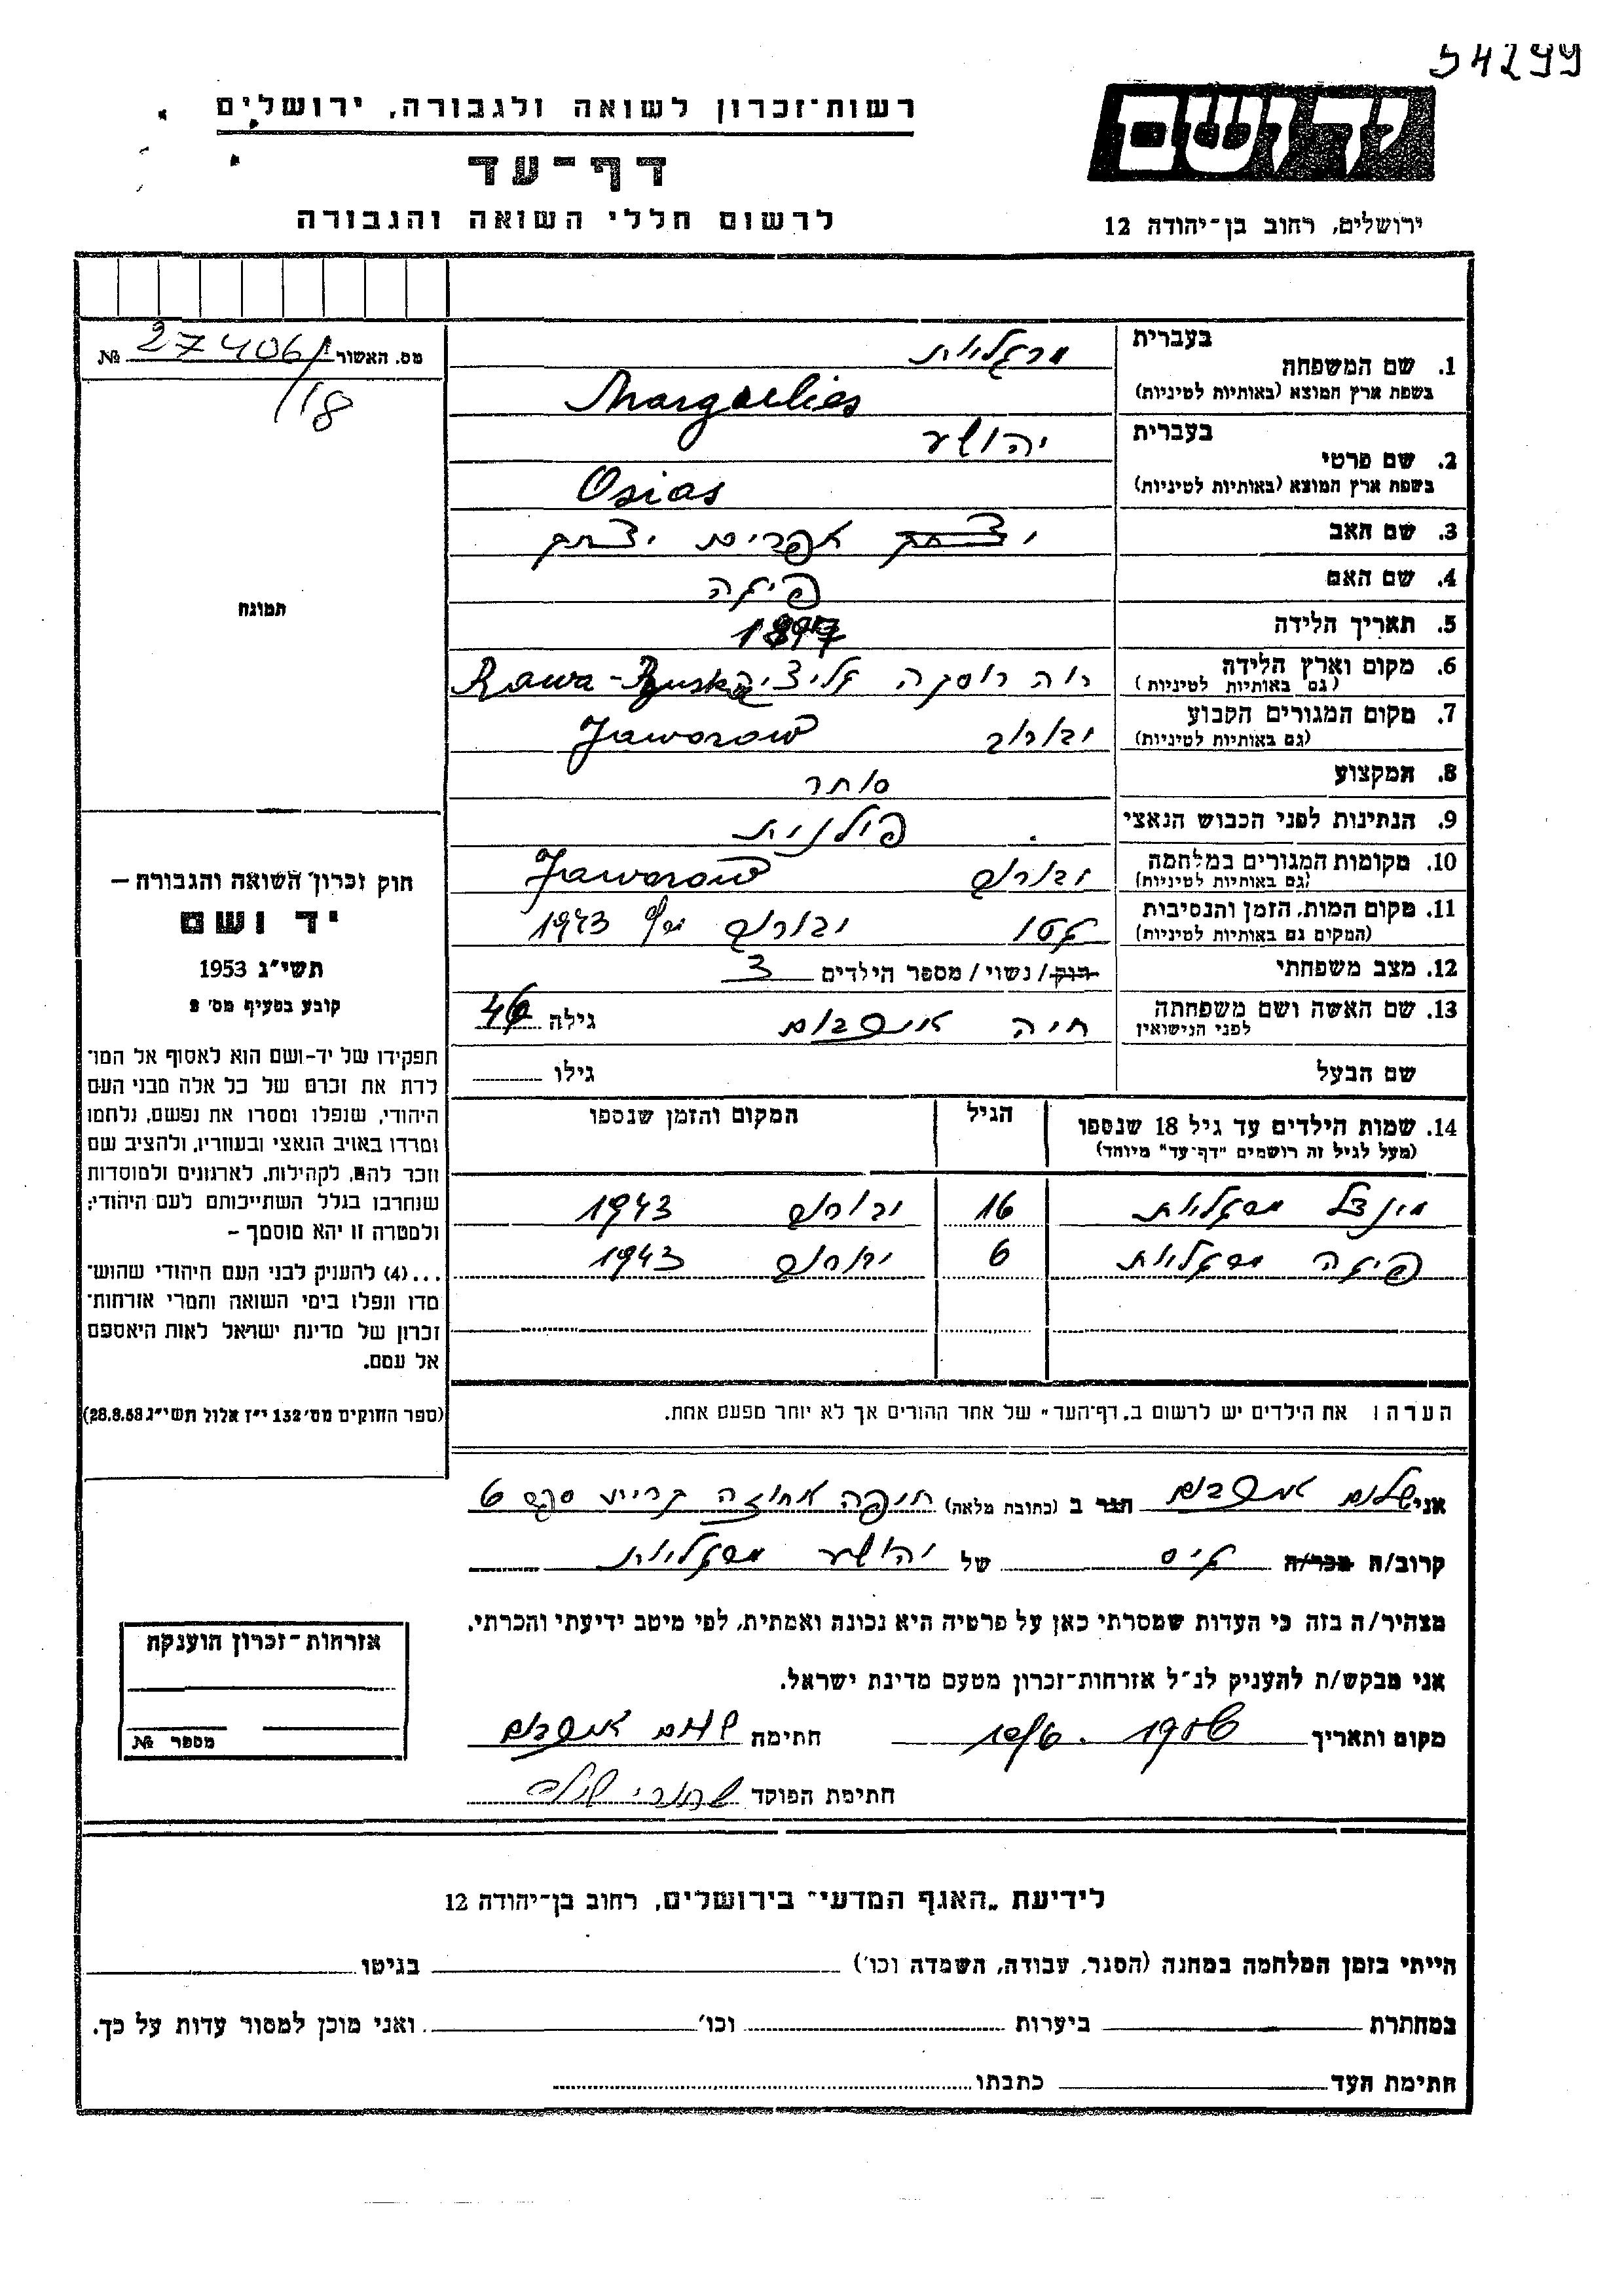 54299
יד ושם
רשות־זכרון לשואה ולגבורה, ירושלים
דף־עד
לרשום חללי השואה והגבורה
ירושלים, רחוב בן־יהודה 12
מס. האשור 27406/1 №
/18
בעברית
1. שם המשפחה מרגליות
בשפת ארץ המוצא (באותיות לטיניות) Margulies
בעברית
2. שם פרטי יהושע
בשפת ארץ המוצא (באותיות לטיניות) Osias
3. שם האב יצחק אפרים יצחק
4. שם האם פיגה
5. תאריך הלידה
6. מקום וארץ הלידה רוה רוסקה גליציה Rawa-Ruska
(גם באותיות לטיניות)
7. מקום המגורים הקבוע יבורוב Jaworow
(גם באותיות לטיניות)
8. המקצוע סוחר
9. הנתינות לפני הכבוש הנאצי פולנית
10. מקומות המגורים במלחמה יבורוב Jaworow
(גם באותיות לטיניות)
11. מקום המות, הזמן והנסיבות גטו יבורוב 1943
(המקום גם באותיות לטיניות)
12. מצב משפחתי רוק/ נשוי/ מספר הילדים 3
13. שם האשה ושם משפחתה חיה גילה 46
לפני הנישואין
שם הבעל גילו
14. שמות הילדים עד גיל 18 שנספו הגיל המקום והזמן שנספו
(מעל לגיל זה רושמים "דף־עד" מיוחד)
מינצל מרגליות 16 יבורוב 1943
פיגה מרגליות 6 יבורוב 1943
הערה: את הילדים יש לרשום ב„דף־העד" של אחד ההורים אך לא יותר מפעם אחת.
תמונה
חוק זכרון השואה והגבורה –
יד ושם
תשי״ג 1953
קובע בסעיף מס׳ 2
תפקידו של יד־ושם הוא לאסוף אל המו־
לדת את זכרם של כל אלה מבני העם
היהודי, שנפלו ומסרו את נפשם, נלחמו
ומרדו באויב הנאצי ובעוזריו, ולהציב שם
וזכר להם, לקהילות, לארגונים ולמוסדות
שנחרבו בגלל השתייכותם לעם היהודי;
ולמטרה זו יהא מוסמך –
...(4) להעניק לבני העם היהודי שהוש־
מדו ונפלו בימי השואה והמרי אזרחות־
זכרון של מדינת ישראל לאות היאספם
אל עמם.
(ספר החוקים מס׳ 132 י״ז אלול תשי״ג 28.8.53)
אני שלום הגר ב (כתובת מלאה) חיפה אחוזה 6
קרוב/ה מכר/ה גיס של יהושע מרגליות
מצהיר/ה בזה כי העדות שמסרתי כאן על פרטיה היא נכונה ואמתית, לפי מיטב ידיעתי והכרתי.
אני מבקש/ת להעניק לנ״ל אזרחות־זכרון מטעם מדינת ישראל.
מקום ותאריך חתימה שלום
חתימת הפוקד
אזרחות־זכרון הוענקה
מספר №
לידיעת „האגף המדעי" בירושלים, רחוב בן־יהודה 12
הייתי בזמן המלחמה במחנה (הסגר, עבודה, השמדה וכו׳) בגיטו
במחתרת ביערות וכו׳ ואני מוכן למסור עדות על כך.
חתימת העד כתבתו